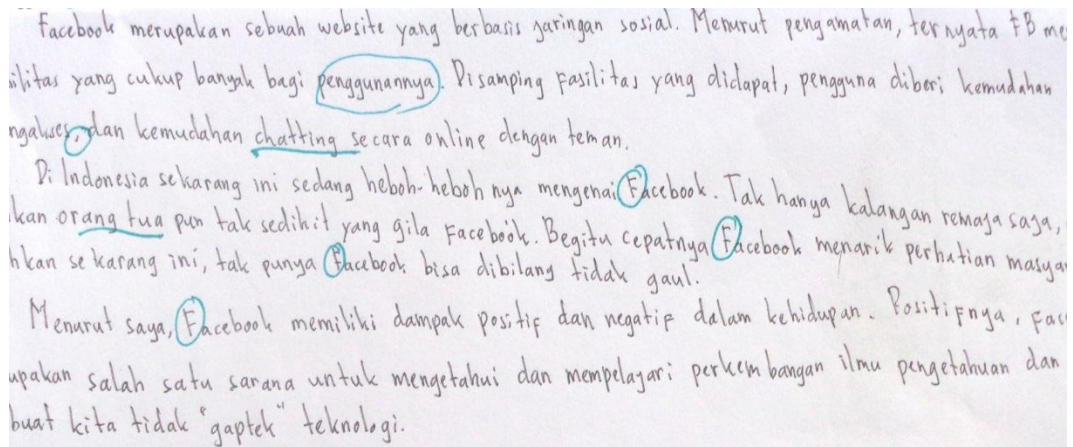 Facebook merupakan sebuah website yang berbasis jaringan sosial. Menurut pengamatan, ternyata FB me
ilitas yang cukup banyak bagi penggunannya. Disamping fasilitas yang didapat, pengguna diberi kemudahan
ngakses, dan kemudahan chatting secara online dengan teman.
Di Indonesia sekarang ini sedang heboh-heboh nya mengenai Facebook. Tak hanya kalangan remaja saja,
kan orang tua pun tak sedikit yang gila Facebook. Begitu cepatnya Facebook menarik perhatian masya
hkan sekarang ini, tak punya Facebook bisa dibilang tidak gaul.
Menurut saya, Facebook memiliki dampak positif dan negatif dalam kehidupan. Positifnya, Fac
upakan salah satu sarana untuk mengetahui dan mempelajari perkembangan ilmu pengetahuan dan
buat kita tidak "gaptek" teknologi.